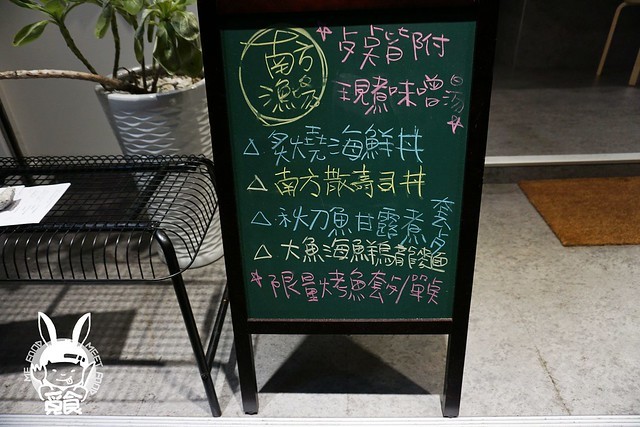 南方
漁場
*点點皆附
現煮味噌湯*
△ 炙燒海鮮丼
△ 南方散壽司丼
△ 秋刀魚甘露煮套餐
△ 大魚海鮮烏龍麵
*限量烤魚套餐/單點
ME FOOD MEET FOOD
覓食